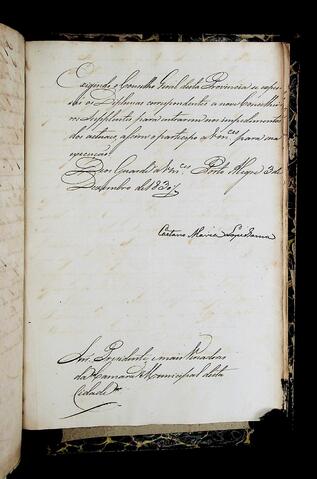 Exigindo o Conselho Geral desta Provincia se expes-
são os Diplomas correspondentes a nove Conselhei-
ros Supplentes para entrarem nos impedimentos
dos actuaes, assim o participo a V.m.ces para sua
execução.
Deos Guarde a V.m.ces. Porto Alegre 3 de
Dezembro de 1830
Caetano Maria Lopes Gama
Snr. Presidente, e mais Vereadores
da Camara Municipal desta
Cidade